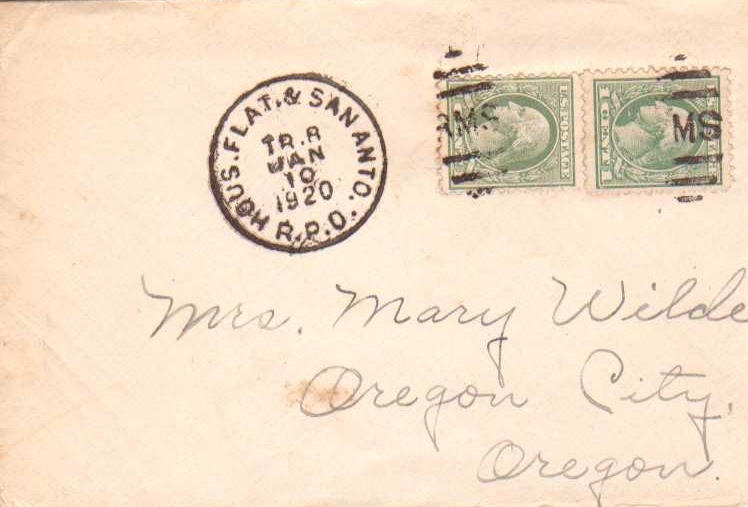 HOUS. FLAT. & SAN ANTO.
R.P.O.
TR. 8
JAN
10
1920
RMS
MS
U.S. POSTAGE
Mrs. Mary Wilde
Oregon City,
Oregon.